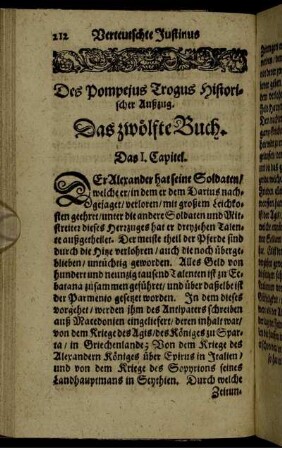 212 Verteutschte Justinus
Des Pompejus Trogus Histori-
scher Außzug.
Das zwölfte Buch.
Das I. Capitel.
DEr Alexander hat seine Soldaten/
welche er/ in dem er dem Darius nach-
gejaget/ verloren/ mit großem Leichko-
sten geehret/ unter die andere Soldaten und Mit-
streiter dieses Herzuges hat er dreyzehen Talen-
te außgetheilet. Der meiste theil der Pferde sind
durch die Hitze verlohren/ auch die noch überge-
blieben/ untüchtig geworden. Alles Gold von
hundert und neunzig tausend Talenten ist zu Ec-
batana zusammen geführet/ und über daßelbe ist
der Parmenio gesetzet worden. In dem dieses
vorgehet/ werden ihm des Antipaters schreiben
auß Macedonien eingeliefert/ deren inhalt war/
von dem Kriege des Agis/ des Königes zu Spar-
ta/ in Griechenlande; Von dem Kriege des
Alexandern Königes über Epirus in Italien/
und von dem Kriege des Sopyrions seines
Landhauptmans in Scythien. Durch welche
Zeitun-